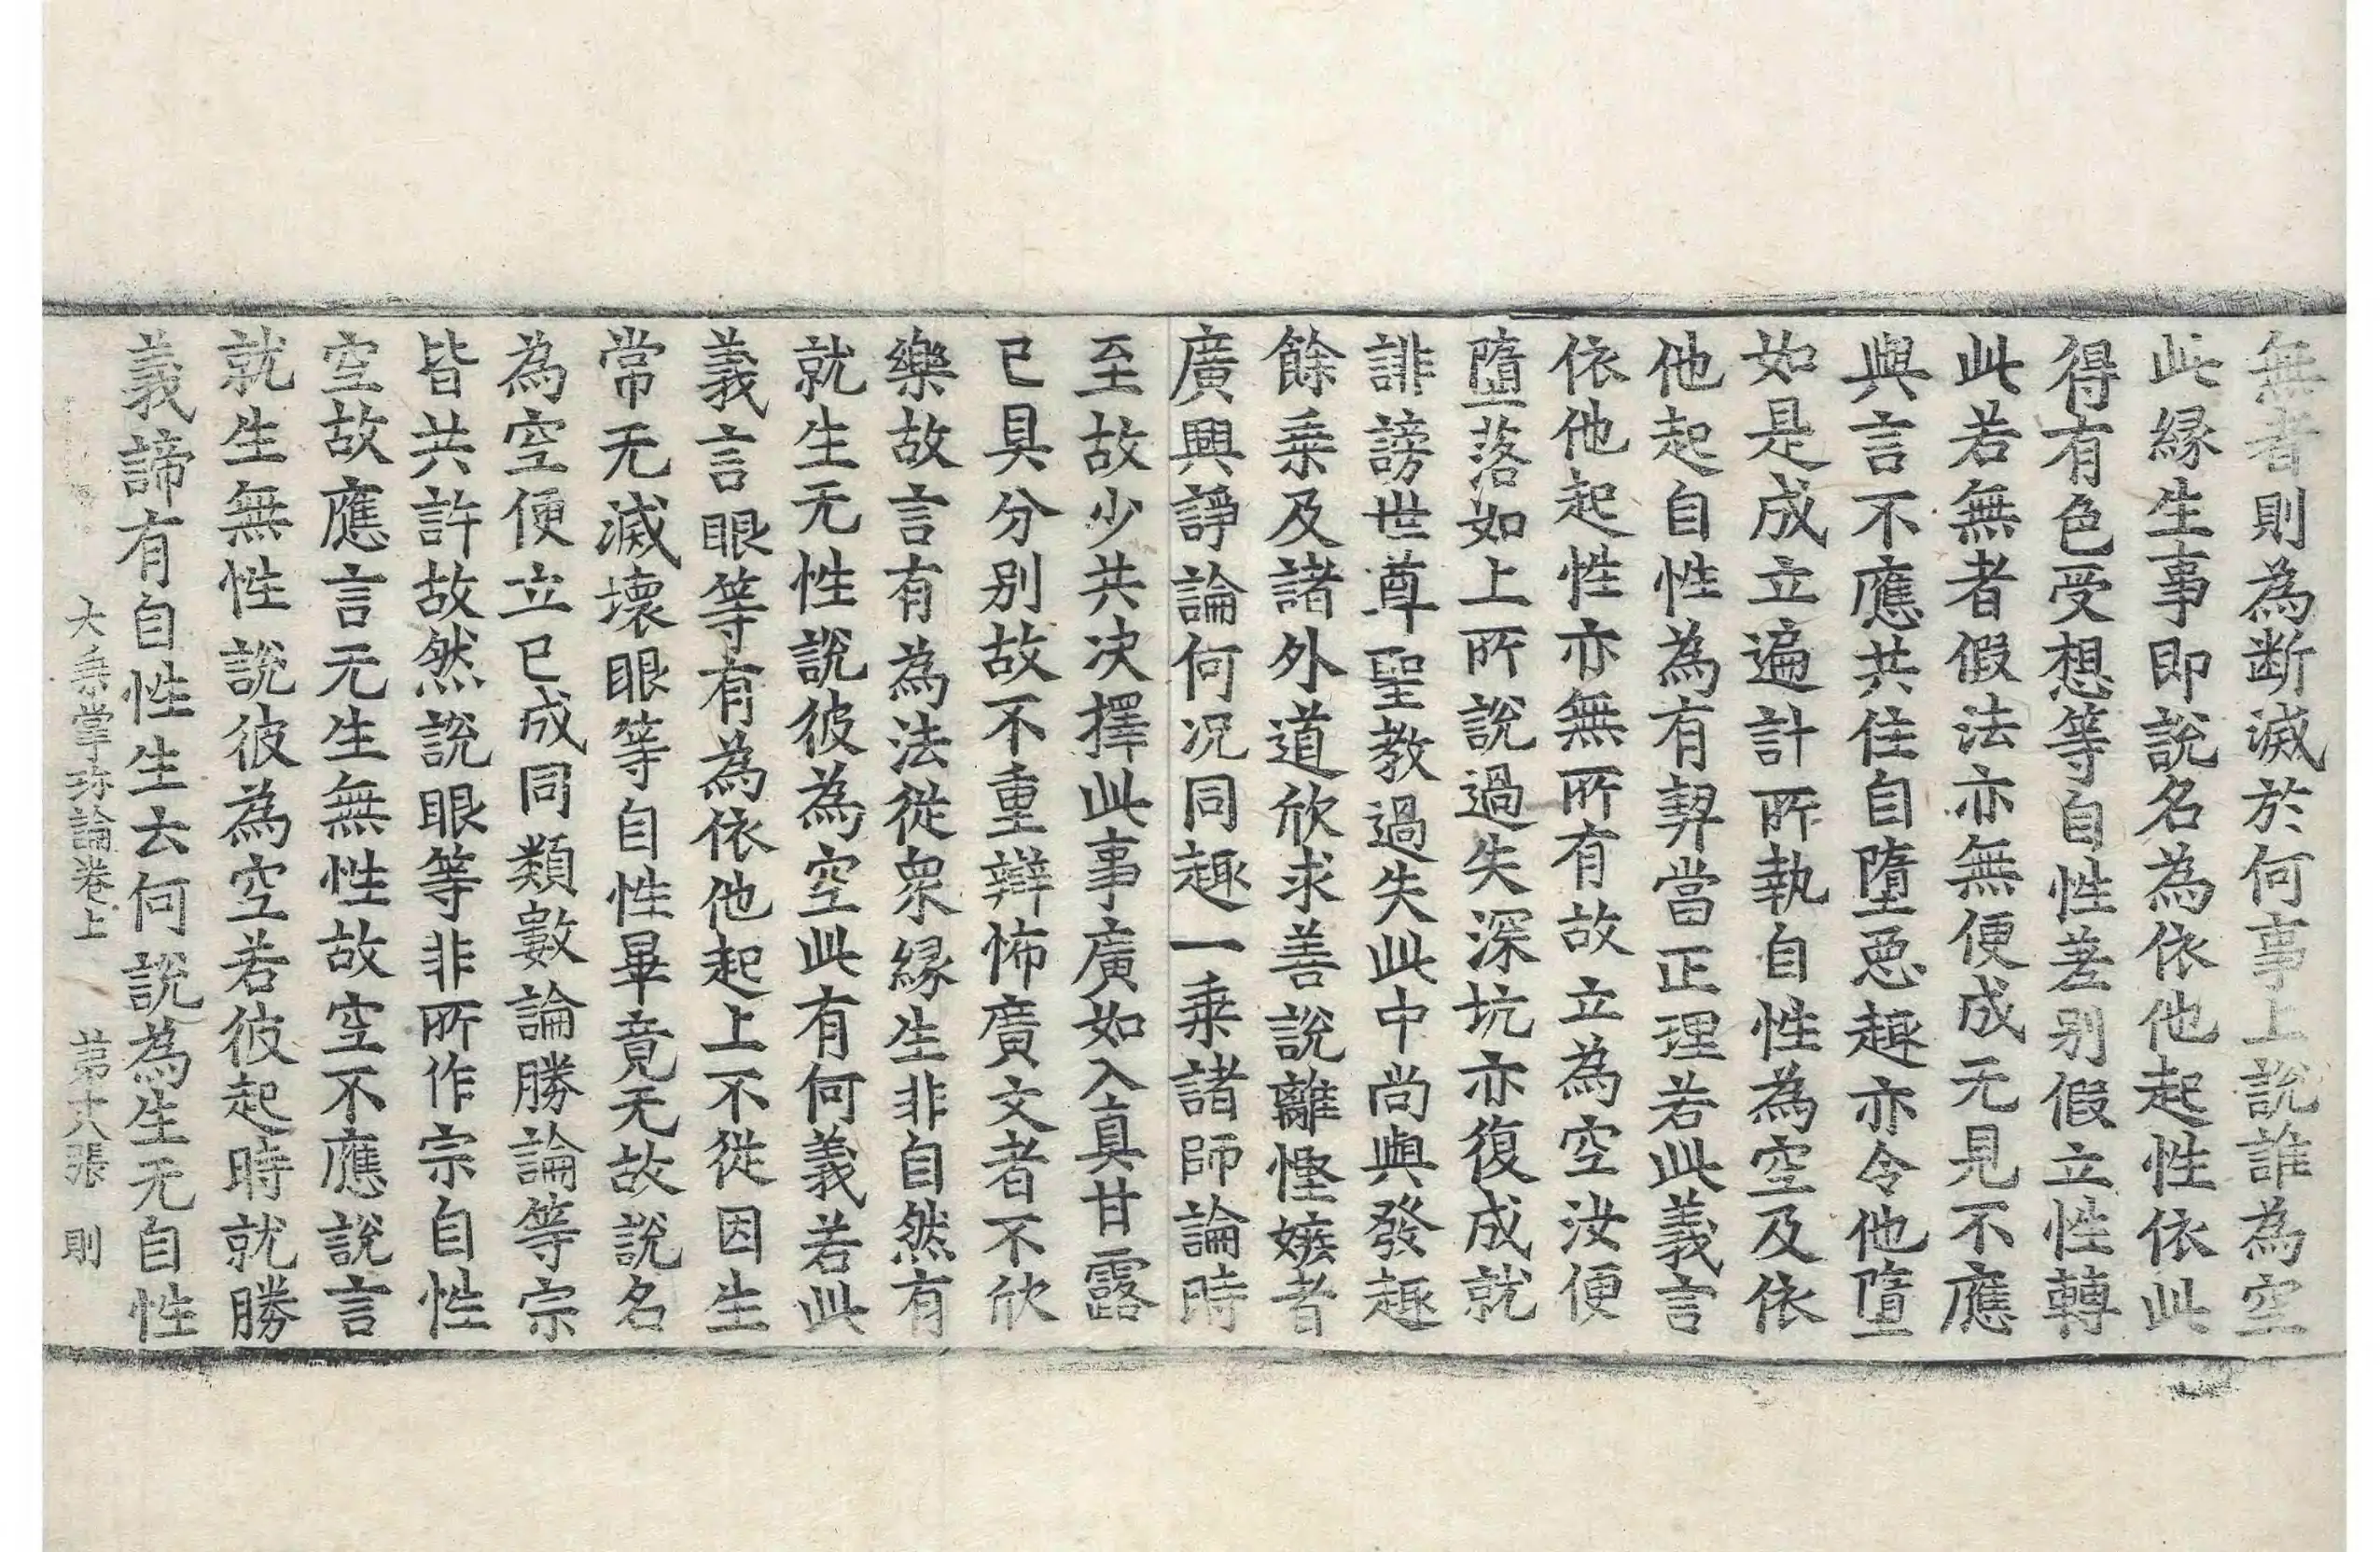 無者則為断滅於何事上說誰為空
此縁生事即說名為依他起性依此
得有色受想等自性差别假立性轉
此若無者假法亦無便成无見不應
與言不應共住自墮惡趣亦令他墮
如是成立遍計所執自性為空及依
他起自性為有契當正理若此義言
依他起性亦無所有故立為空汝便
墮落如上所說過失深坑亦復成就
誹謗世尊聖教過失此中尚與發趣
餘乗及諸外道欣求善說離慳嫉者
廣興諍論何況同趣一乗諸師論時
至故少共决擇此事廣如入真甘露
已具分别故不重辯怖廣文者不欣
樂故言有為法從衆縁生非自然有
就生无性說彼為空此有何義若此
義言眼等有為依他起上不從因生
常无滅壞眼等自性畢竟无故說名
為空便立已成同類數論勝論等宗
皆共許故然說眼等非所作宗自性
空故應言无生無性故空不應說言
就生無性說彼為空若彼起時就勝
義諦有自性生去何說為生无自性
大乗掌珎論卷上 第十八張 則